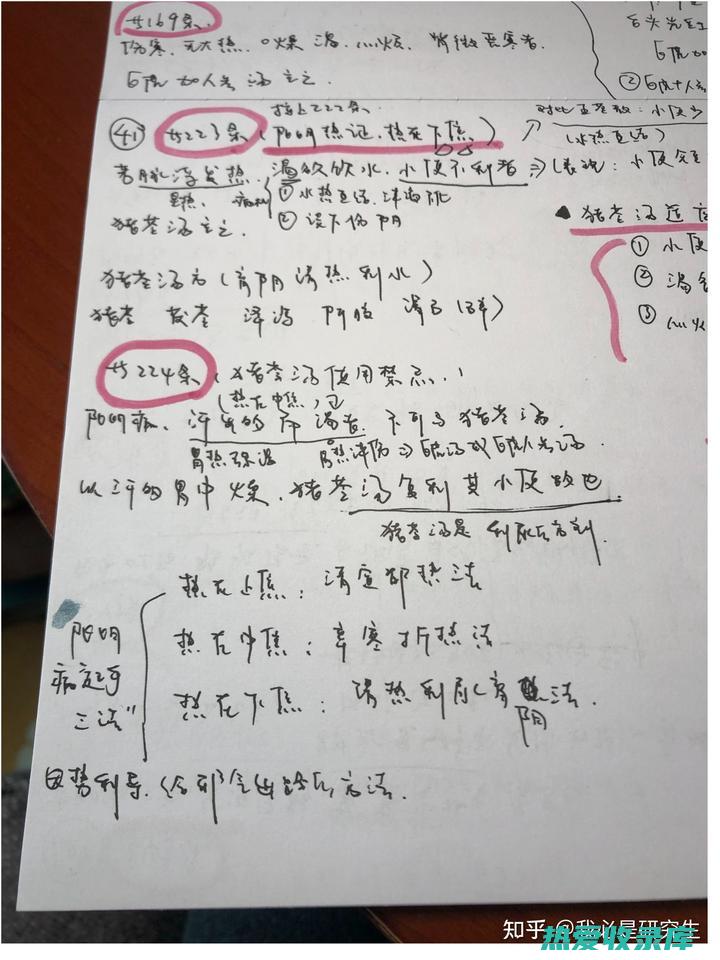 廿169条.
伤寒、无大热、口燥渴、心烦、背微恶寒者.
白虎加人参汤主之.
接上222条.
㊶ 廿223条(阳明热证,热在下焦)
若脉浮发热、渴欲饮水、小便不利者
里热、病机 ① 水热互结、津液
猪苓汤主之. ② 误下伤阴
⇒(表现:小便
对比五苓散:小便少
(水热互结)
▲ 猪苓汤适应
① 小便
② 渴
③ 心烦
② 白虎+人参
猪苓汤方(育阴清热利水)
猪苓 茯苓 泽泻 阿胶 滑石
廿224条(猪苓汤使用禁忌)
(热在中焦)
阳明病、汗出多而渴者、不可与猪苓汤.
胃热 胃热津伤⇒白虎汤或白虎人参汤.
以汗多胃中燥、猪苓汤复利其小便故也.
猪苓汤是利尿的方剂.
阳明病起手三法"
热在上焦:清宣郁热法
热在中焦:辛寒折热法
热在下焦:清热利水育阴法.
因势利导、给邪气出路的方法.
知乎 @我必是研究生
热爱收录库